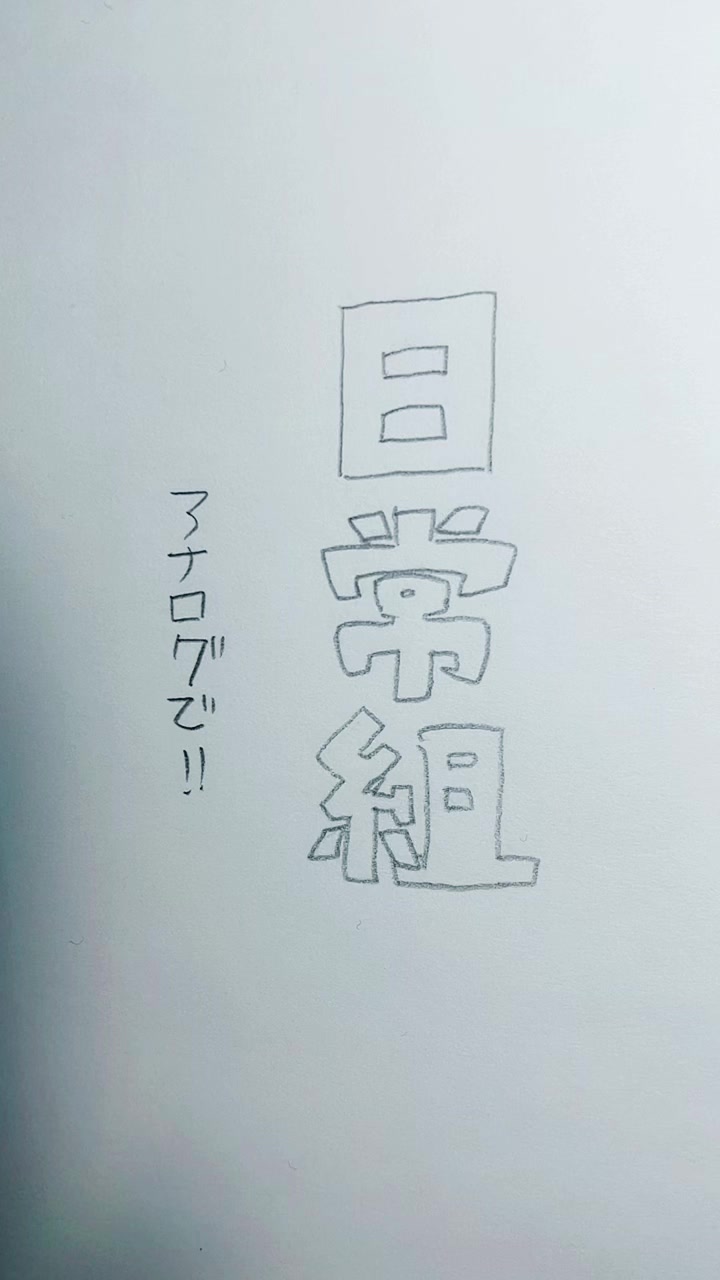 日常組
アナログで!!